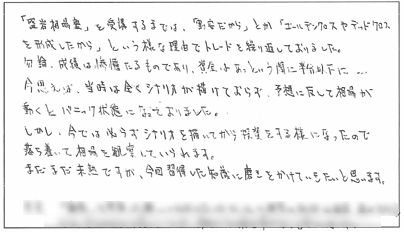 「賢者相場塾」を受講するまでは、「割安だから」とか「ゴールデンクロスやデッドクロス
を形成したから」という様な理由でトレードを繰り返しておりました。
勿論、成績は惨憺たるものであり、資金はあっという間に半分以下に…
今思えば、当時は全くシナリオが描けておらず、予想に反して相場が
動くとパニック状態になっておりました。
しかし、今では必ずシナリオを描いてから投資をする様になったので
落ち着いて相場を観察していられます。
まだまだ未熟ですが、今回習得した知識に磨きをかけていきたいと思います。